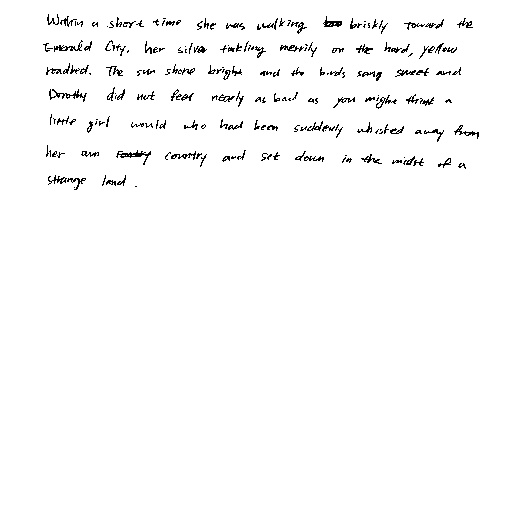 Within a short time she was walking briskly toward the
Emerald City, her silver tinkling merrily on the hard, yellow
roadbed. The sun shone bright and the birds sang sweet and
Dorothy did not feel nearly as bad as you might think a
little girl would who had been suddenly whisked away from
her own country and set down in the midst of a
strange land.